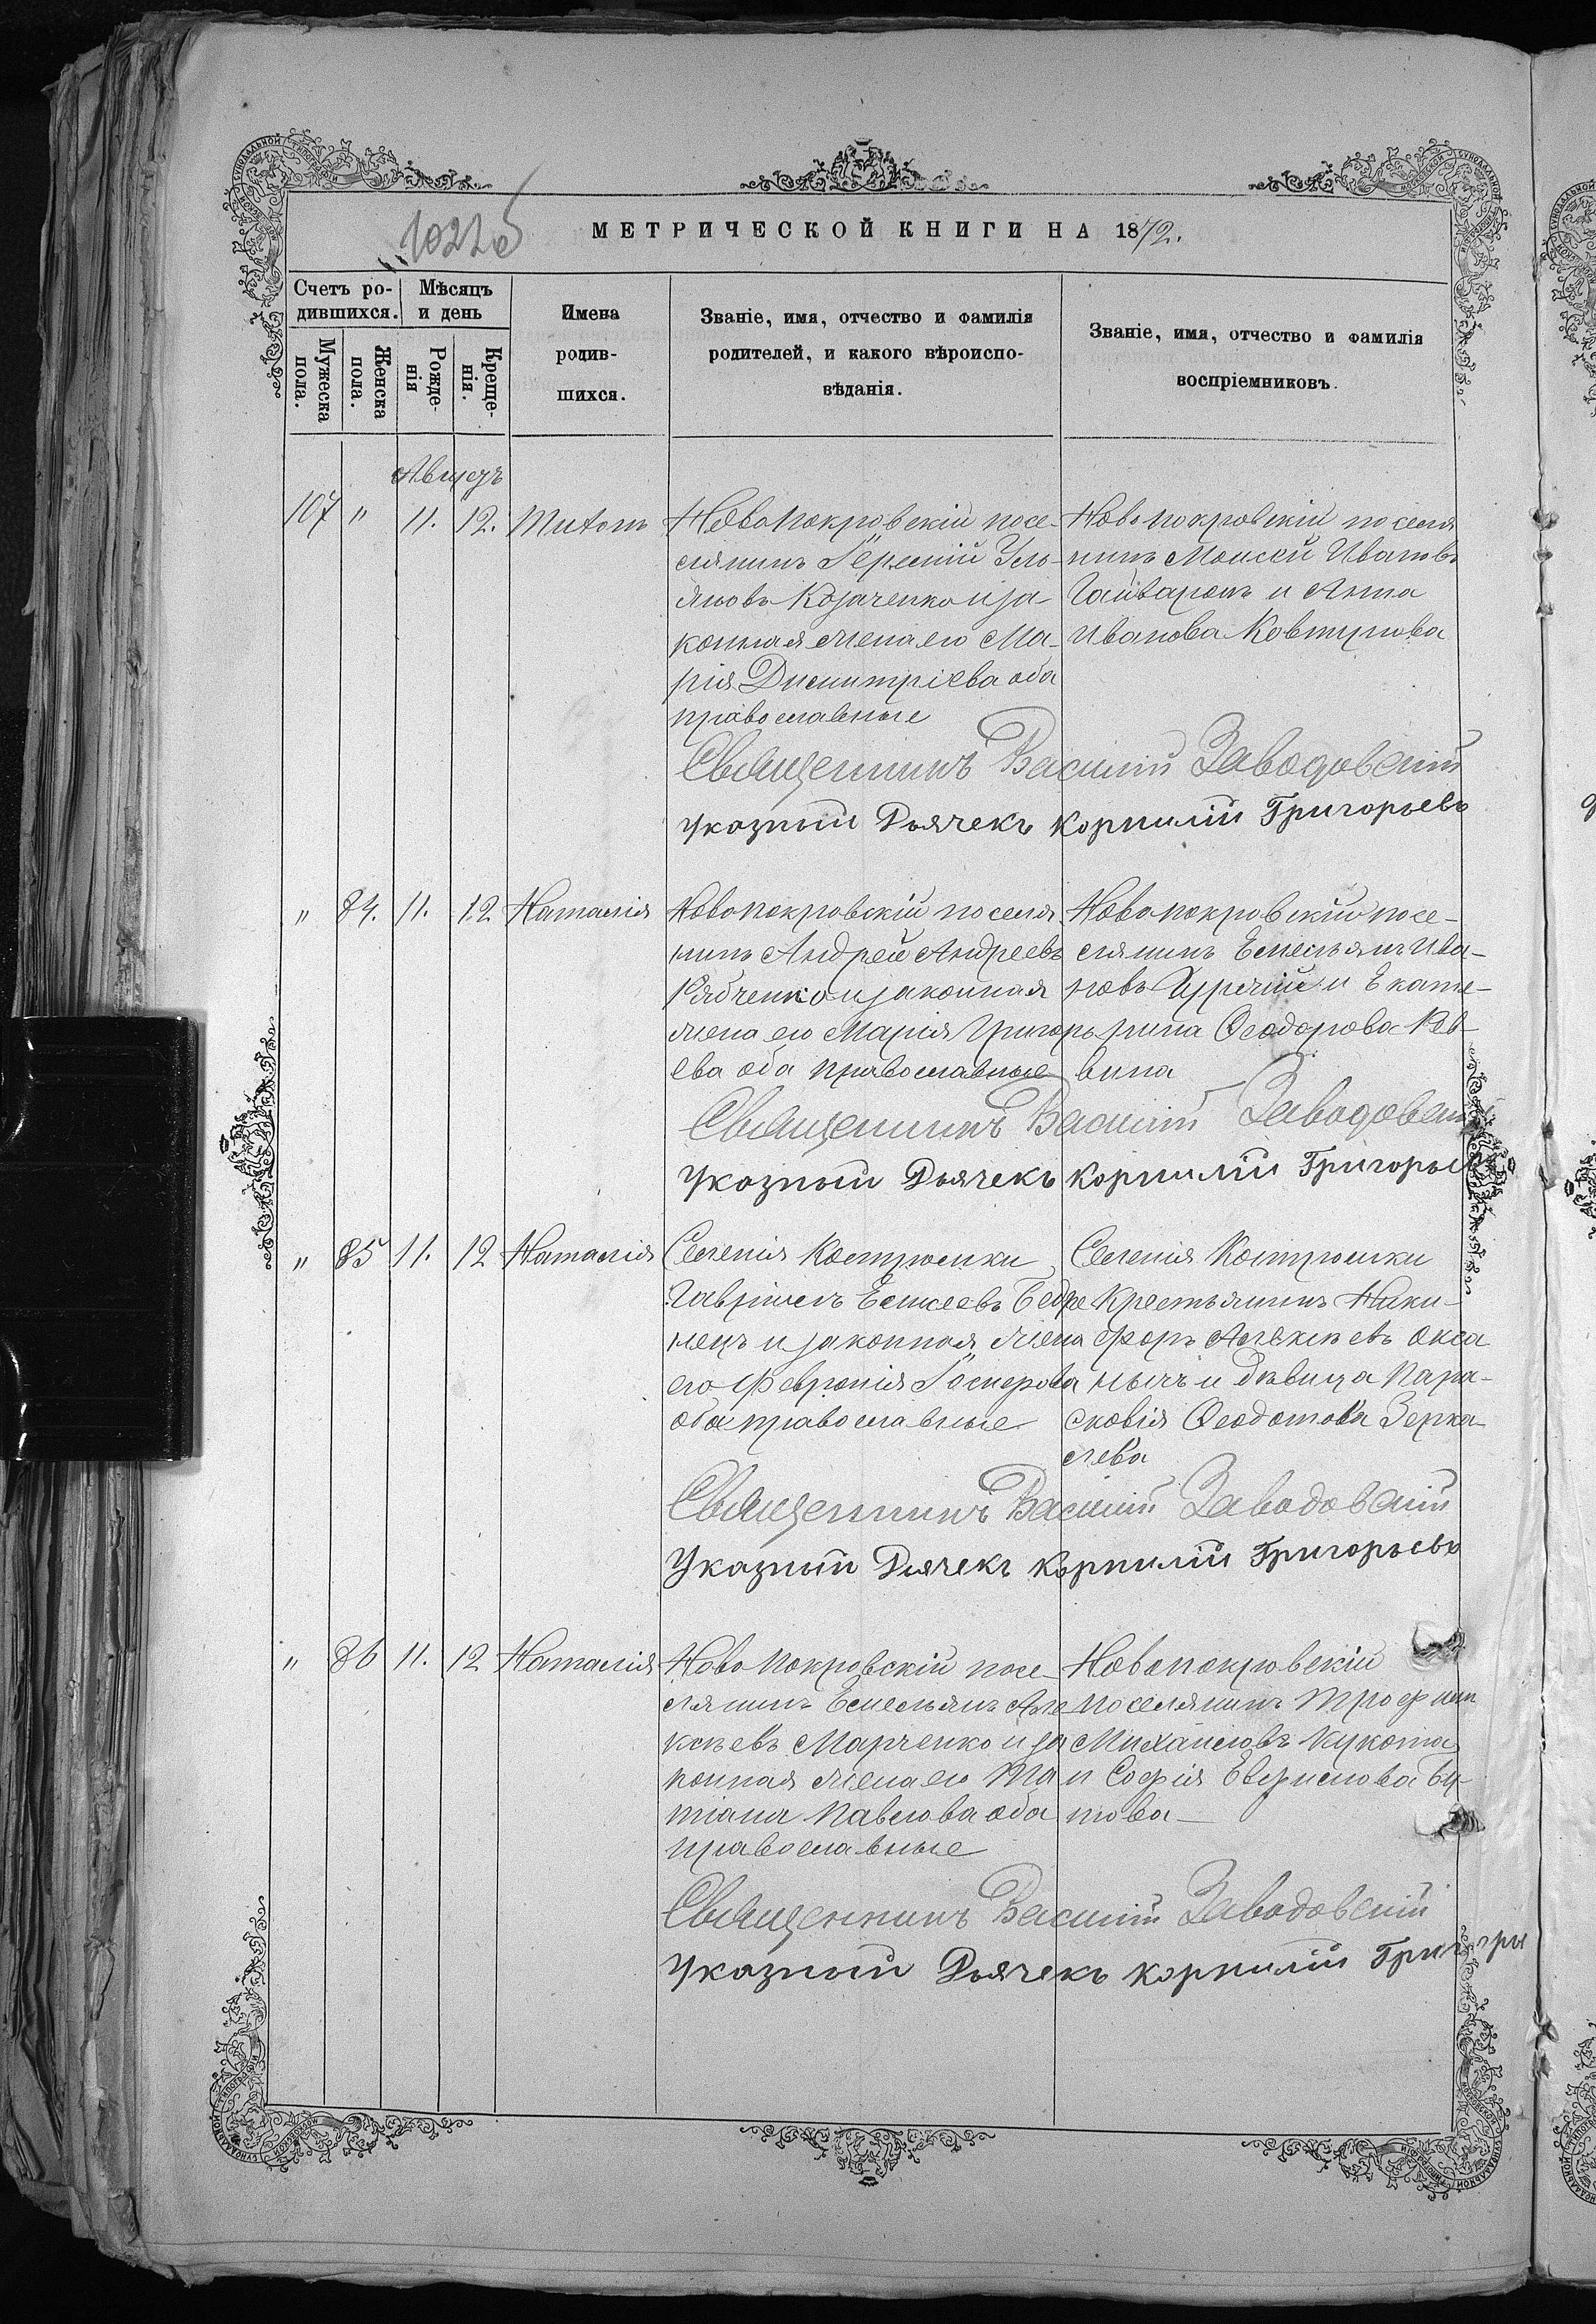 МЕТРИЧЕСКОЙ КНИГИ НА 1872.
Счетъ ро-
дившихся.
Мѣсяцъ
и день
Мужеска
пола.
Женска
пола.
Рожде-
нія
Креще-
нія.
Имена
родив-
шихся.
Званіе, имя, отчество и фамилія
родителей, и какого вѣроиспо-
вѣданія.
Званіе, имя, отчество и фамилія
воспріемниковъ.
Августъ
107 " 11. 12. Титъ
Новопокровскій посе-
лянинъ Улья-
яновъ Козаченко и за-
конная жена его Ма-
рія Димитріева оба
православные
Новопокровскій поселя
нинъ Моисей Ивановъ
Гайваронъ и Анна
Иванова Ковтунова
Священникъ Василій Заводовскій
Указный Дьячекъ Корнилій Григорьевъ
" 84. 11. 12. Наталія
Новопокровскій поселя
нинъ Андрей Андреевъ
Рябченко и законная
жена его Марія Григорь
ева оба православные
Новопокровскій посе-
лянинъ Емельянъ Ива-
новъ и Екате-
рина Ѳеодорова Ков-
вина
Священникъ Василій Заводовскій
Указный Дьячекъ Корнилій Григорьев
" 85 11. 12 Наталія
Селенія Костромки
Гавріилъ Елисеевъ Бедре
нецъ и законная жена
его Февронія
оба православные
Селенія Костромки
Крестьянинъ Ники-
форъ Алексѣевъ Окса
ничъ и дѣвица Пара-
сковія Ѳеодотова Зерка-
лева
Священникъ Василій Заводовскій
Указный Дьячекъ Корнилій Григорьевъ
" 86 11. 12 Наталія
Новопокровскій посе-
лянинъ Емельянъ Але
ксѣевъ Марченко и за
конная жена его Та
тіана Павлова оба
православные
Новопокровскій
поселянинъ Трофим
Михайловъ Кукота
и Софія Евфимова Бу-
това
Священникъ Василій Заводовскій
Указный Дьячекъ Корнилій Григоры